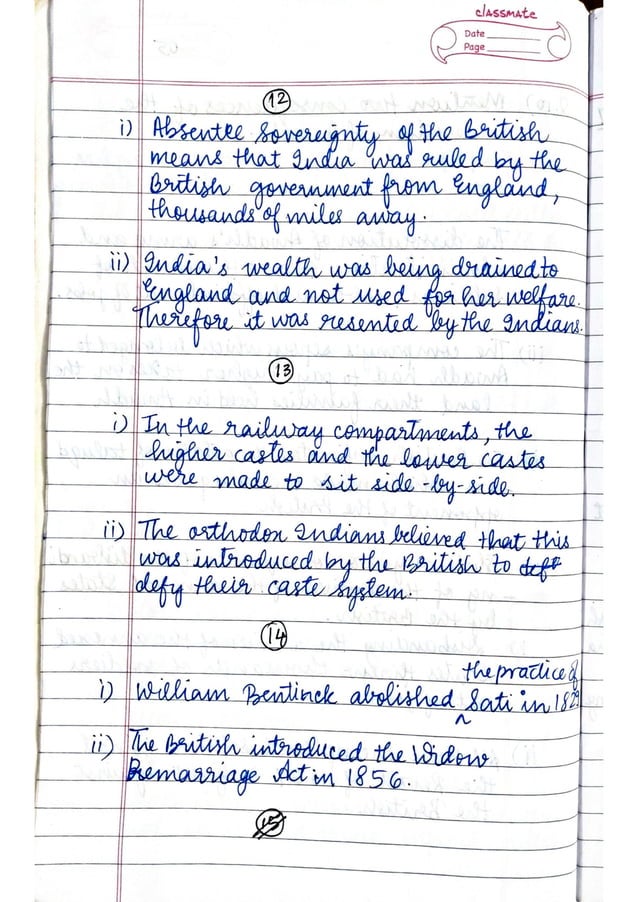 classmate
Date
Page
12
i) Absentee Sovereignty of the British
means that India was ruled by the
British government from England,
thousands of miles away.
ii) India's wealth was being drained to
England and not used for her welfare.
Therefore it was resented by the Indians.
13
i) In the railway compartments, the
higher castes and the lower castes
were made to sit side-by-side.
ii) The orthodox Indians believed that this
was introduced by the British to
defy their caste system.
14
the practice of
i) William Bentinck abolished ^ Sati in 1829
ii) The British introduced the Widow
Remarriage Act in 1856.
15